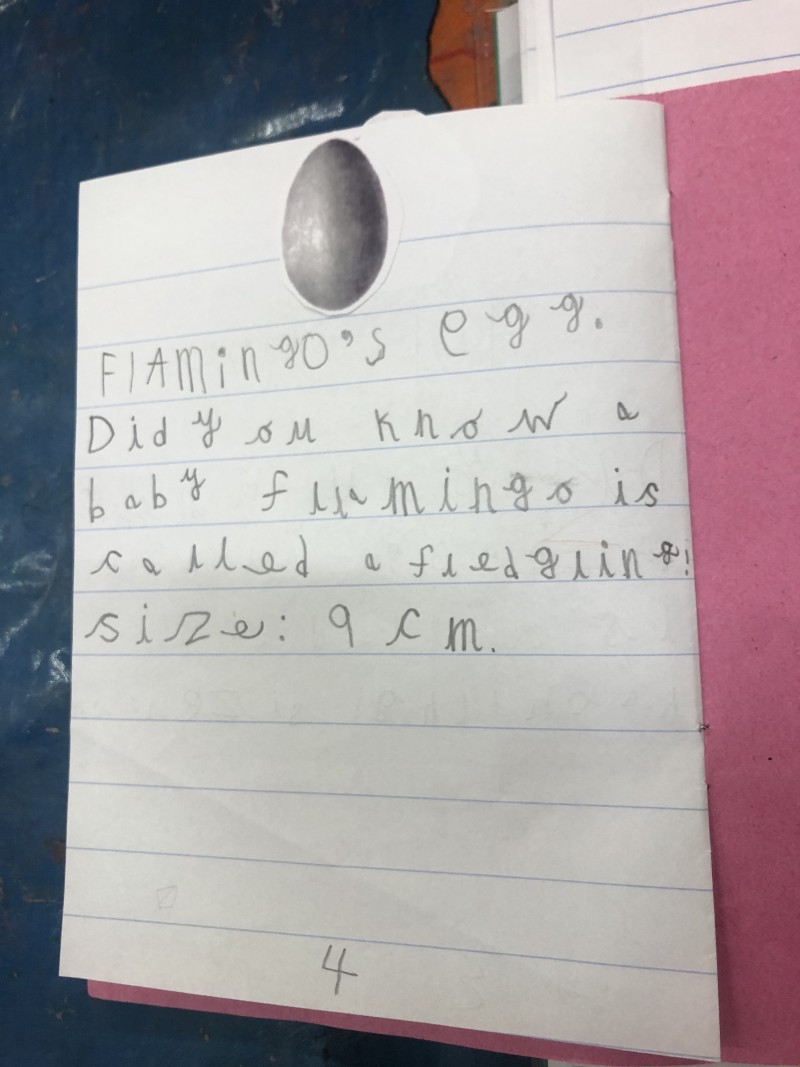 FlAmingo's egg.
Did you know a
baby flamingo is
called a fledgling!
size: 9 cm.
4